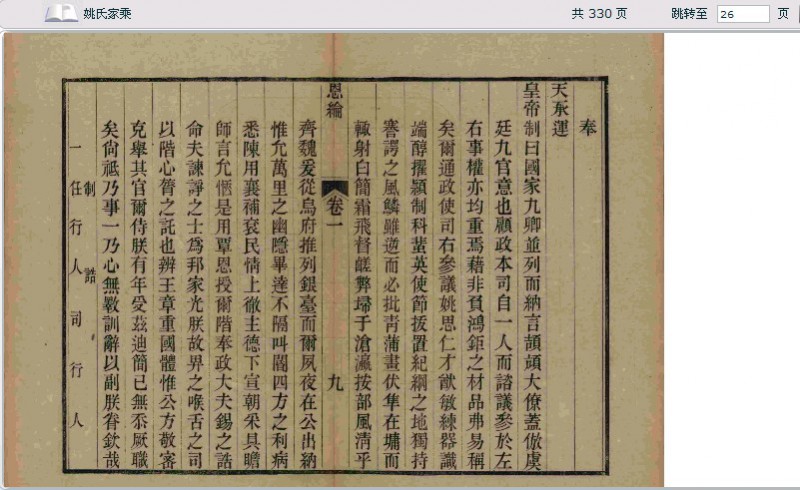 姚氏家乘
共 330 页
跳转至 26 页
奉
天承運
皇帝制曰國家九卿並列而納言頡頏大僚蓋倣虞
廷九官意也顧政本司自一人而諮議參於左
右事權亦均重焉藉非負鴻鉅之材品弗易稱
矣爾通政使司右參議姚思仁才猷敏練器識
端醇擢穎制科蜚英使節拔置紀綱之地獨持
謇諤之風鱗雖逆而必批青蒲晝伏隼在墉而
輙射白簡霜飛督鹺弊埽于滄瀛按部風清乎
恩綸
卷一
九
齊魏爰從烏府推列銀臺而爾夙夜在公出納
惟允萬里之幽隱畢達不隔叫閽四方之利病
悉陳用襄補袞民情上徹主德下宣朝采具瞻
師言允愜是用覃恩授爾階奉政大夫錫之誥
命夫諫諍之士為邦家光朕故畀之喉舌之司
以階心膂之託也辨王章重國體惟公方敬審
克舉其官爾侍朕有年受茲迪簡已無忝厥職
矣尚祗乃事一乃心無斁訓辭以副朕眷欽哉
制誥
一任行人司行人